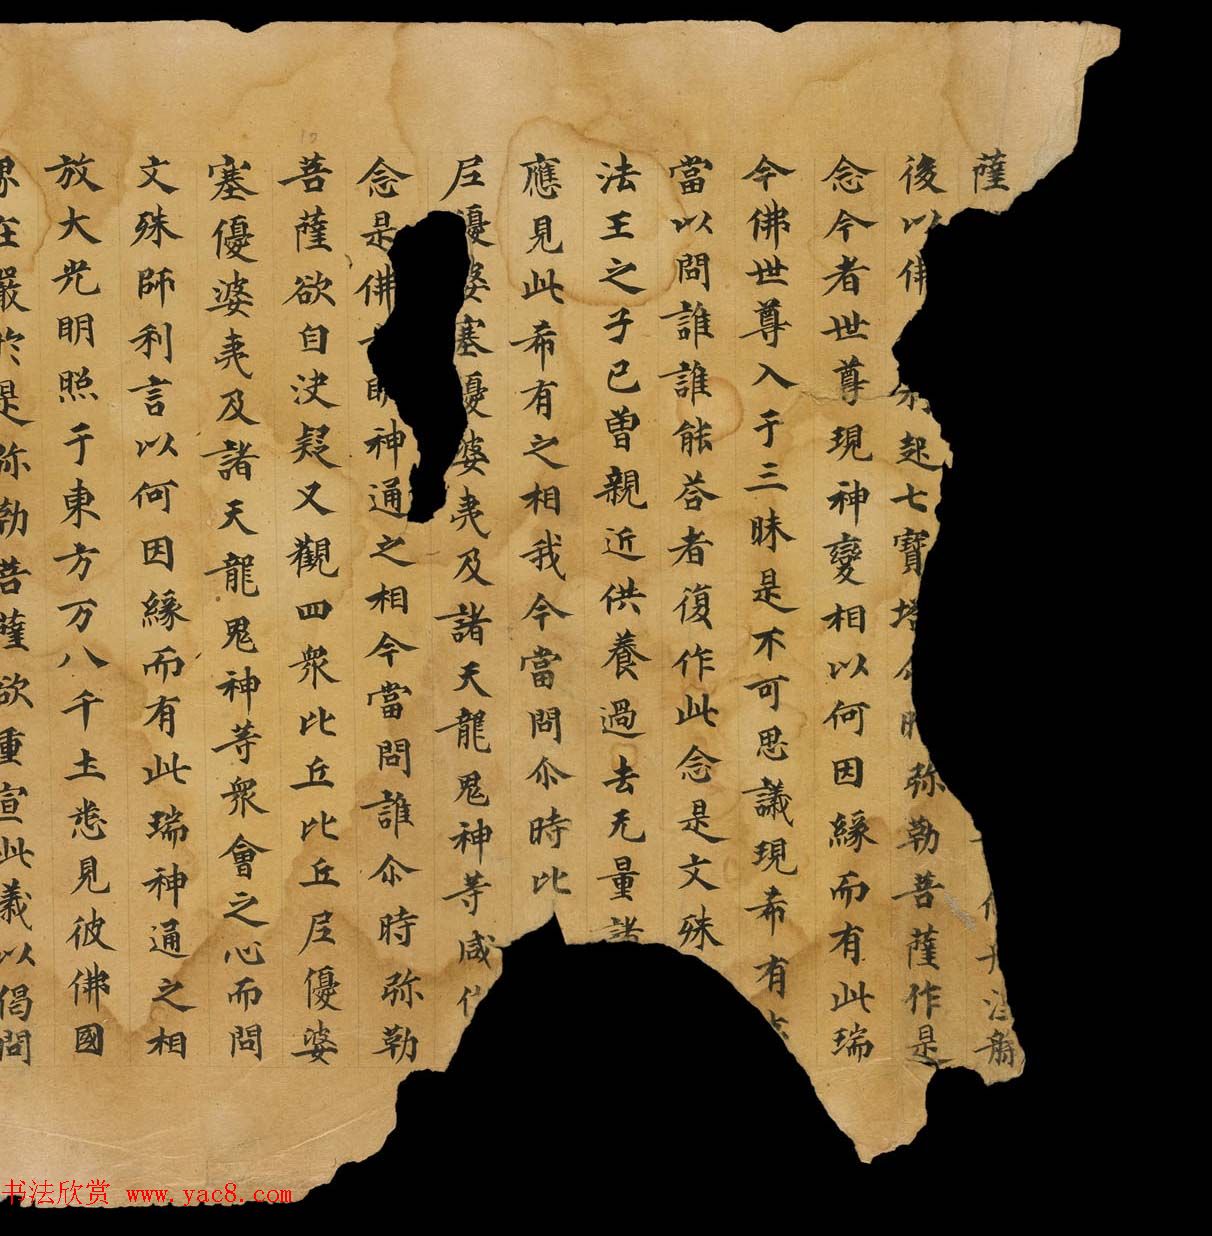 薩 涅槃
後以佛 起七寶塔 弥勒菩薩作是
念今者世尊現神變相以何因緣而有此瑞
今佛世尊入于三昧是不可思議現希有
當以問誰誰能荅者復作此念是文殊
法王之子已曽親近供養過去无量諸
應見此希有之相我今當問尒時比
丘尼優婆塞優婆夷及諸天龍鬼神等咸作
念是佛 明神通之相今當問誰尒時弥勒
菩薩欲自決疑又觀四衆比丘比丘尼優婆
塞優婆夷及諸天龍鬼神等衆會之心而問
文殊師利言以何因緣而有此瑞神通之相
放大光明照于東方万八千土悉見彼佛國
界莊嚴於是弥勒菩薩欲重宣此義以偈問
书法欣赏 www.yac8.com